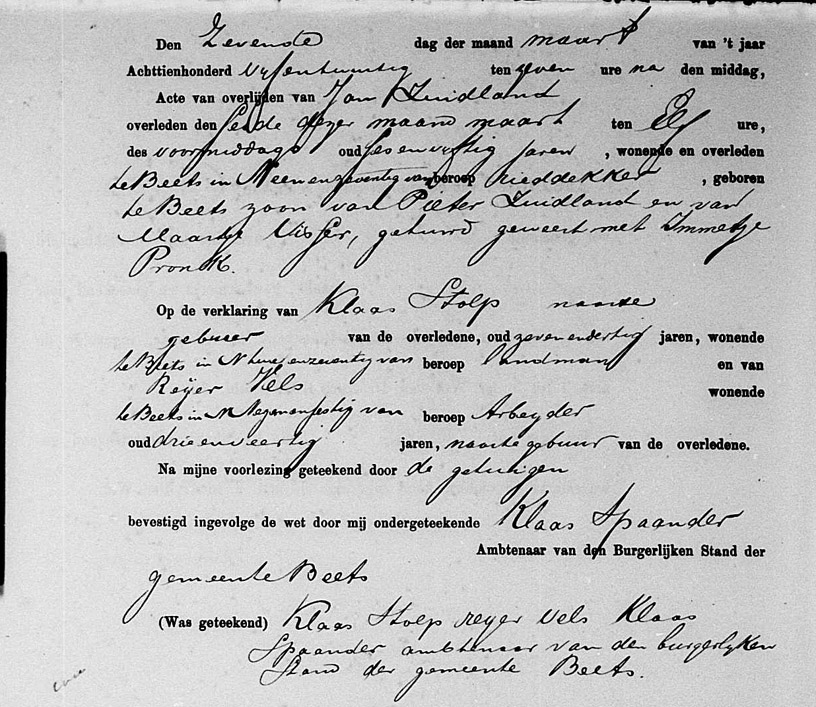 Den Zevenste dag der maand maart van 't jaar
Achttienhonderd vyfentwintig ten zeven ure na den middag,
Acte van overlijden van Jan Zuidland
overleden den sesde dezer maand maart ten Elf ure,
des voormiddags oud ses en vyftig jaren , wonende en overleden
te Beets in N een en zeventig van beroep rieddekker , geboren
te Beets zoon van Pieter Zuidland en van
Maartje Visser, getuwd geweest met Immetje
Pronk.
Op de verklaring van Klaas Stolp naaste
gebuur van de overledene, oud zeven en dertig jaren, wonende
te Beets in N twee en zeventig van beroep landman en van
Reijer Vels wonende
te Beets in N Negenensestig van beroep Arbeyder
oud drie en veertig jaren, naaste gebuur van de overledene.
Na mijne voorlezing geteekend door de getuigen
bevestigd ingevolge de wet door mij ondergeteekende Klaas Spaander
Ambtenaar van den Burgerlijken Stand der
gemeente Beets
(Was geteekend) Klaas Stolp reyer Vels Klaas
Spaander ambtenaar van den burgerlyken
Stand der gemeente Beets.